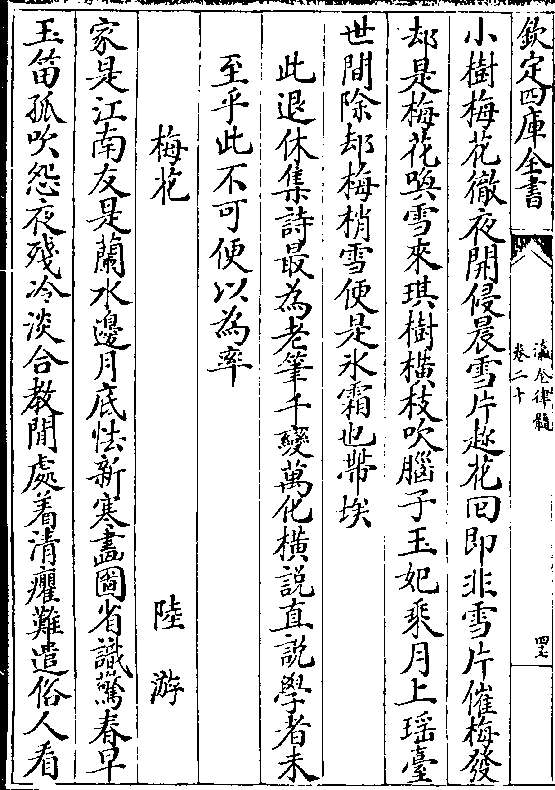 欽定四庫全書
瀛奎律髓
卷二十
四七
小樹梅花徹夜開侵晨雪片趂花回即非雪片催梅發
却是梅花喚雪來琪樹橫枝吹腦子玉妃乘月上瑶臺
世間除却梅梢雪便是氷霜也帶埃
此退休集詩最為老筆千變萬化橫説直説學者未
至乎此不可便以為率
梅花
陸游
家是江南友是蘭水邊月底怯新寒畫圖省識驚春早
玉笛孤吹怨夜殘冷淡合教閒處着清癯難遣俗人看